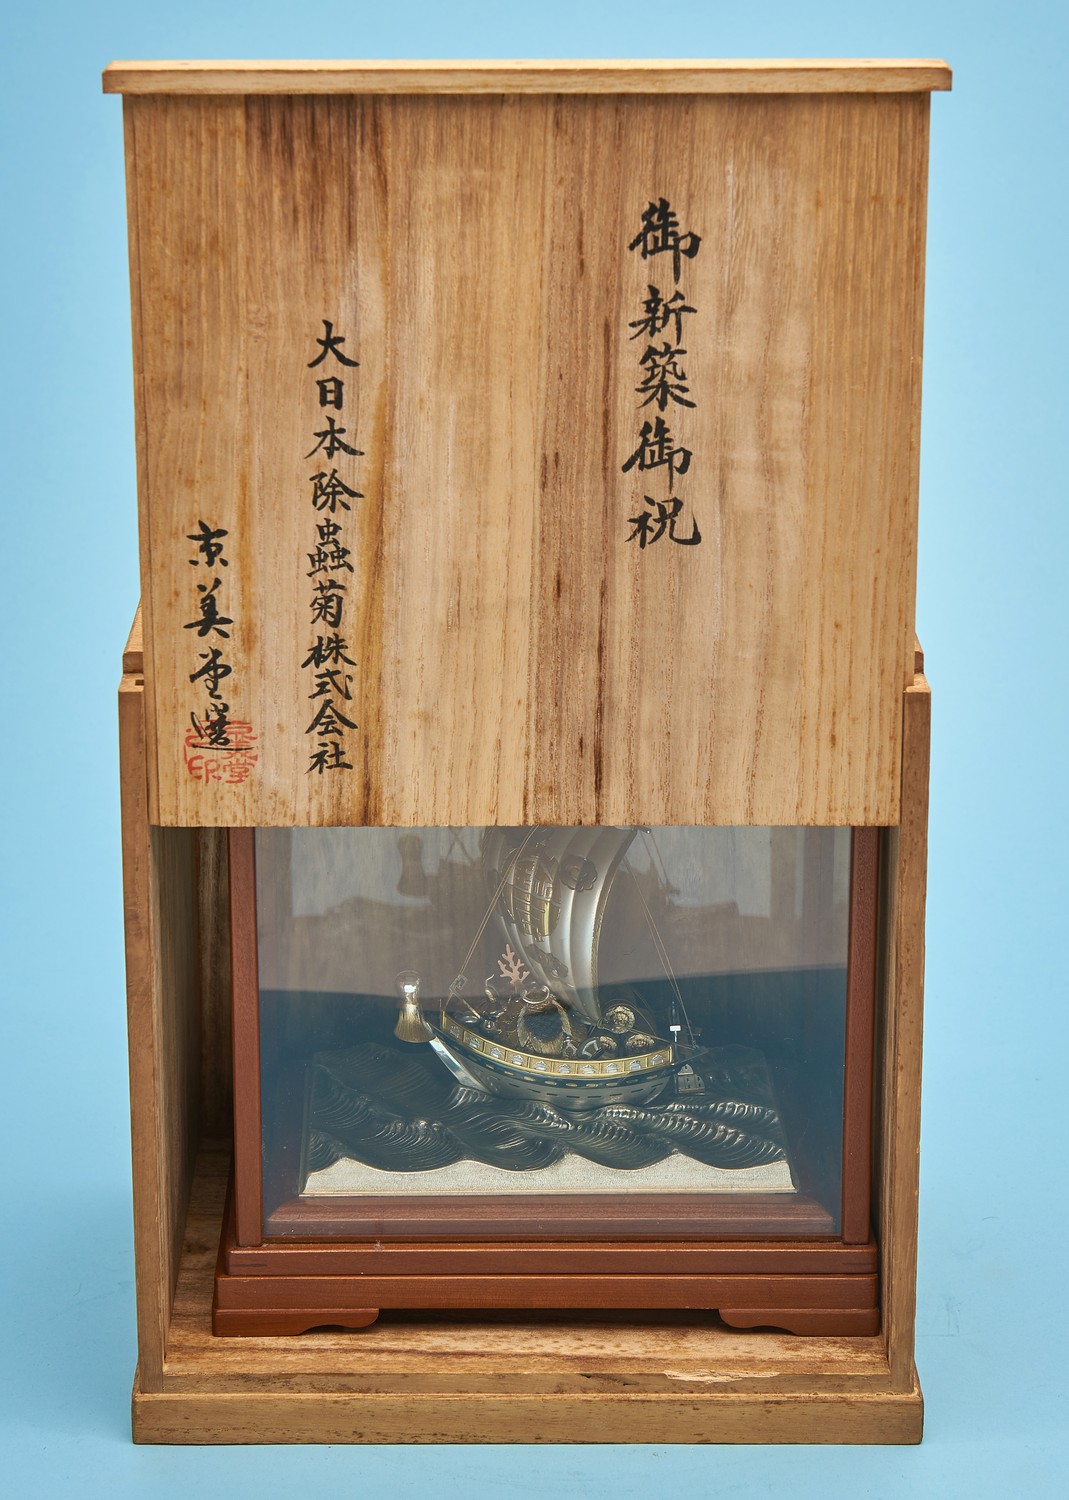 御新築御祝
大日本除蟲菊株式会社
京美堂選